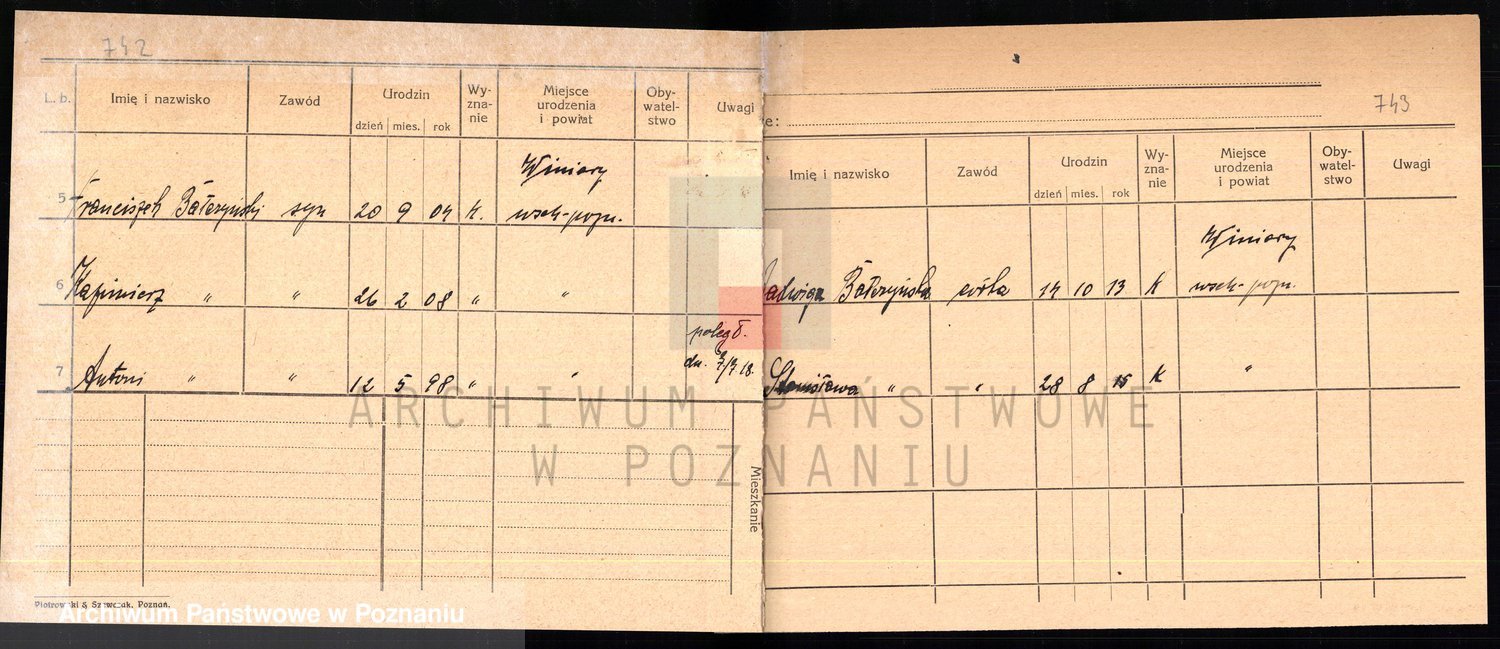 742
L. b. Imię i nazwisko Zawód Urodzin Wy-zna-nie Miejsce urodzenia i powiat Oby-watel-stwo Uwagi
dzień mies. rok
Winiary
5 Franciszek Bałczyński syn 20 9 04 k. wsch-pozn.
6 Kazimierz " " 26 2 08 " "
poległ.
7 Antoni " " 12 5 98 " " dn. 18.
Mieszkanie
Piotrowski & Szewczak, Poznań.
743
e:
Imię i nazwisko Zawód Urodzin Wy-zna-nie Miejsce urodzenia i powiat Oby-watel-stwo Uwagi
dzień mies. rok
Winiary
Jadwiga Bałczyńska córka 14 10 13 k wsch-pozn.
Stanisława " " 28 8 15 k "
ARCHIWUM PAŃSTWOWE
W POZNANIU
Archiwum Państwowe w Poznaniu